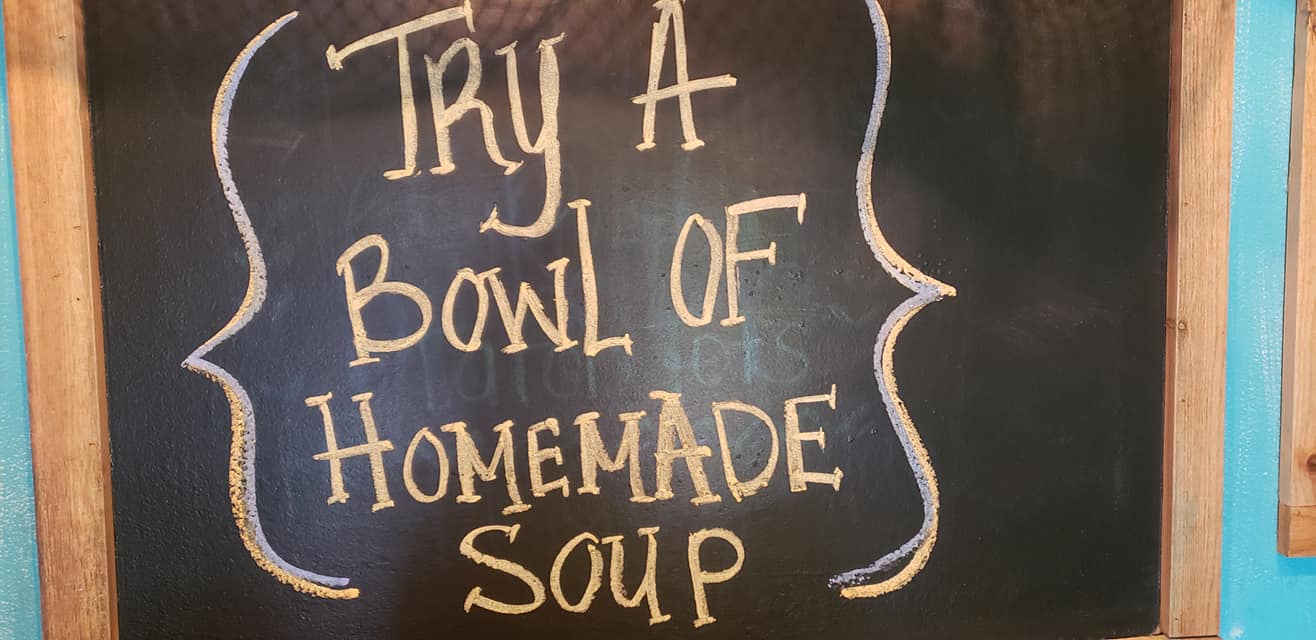 TRY A
BOWL OF
HOMEMADE
SOUP